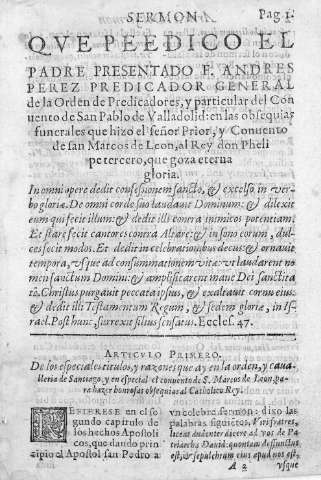 SERMON
Pag 1.
QVE PEEDICO EL
PADRE PRESENTADO F. ANDRES
PEREZ PREDICADOR GENERAL
de la Orden de Predicadores, y particular del Con
uento de San Pablo de Valladolid: en las obsequias
funerales que hizo el señor Prior, y Conuento
de san Marcos de Leon, al Rey don Pheli
pe tercero, que goza eterna
gloria.
In omni opere dedit confessionem sancto, & excelso in ver-
bo gloriæ. De omni corde suo laudauit Dominum: & dilexit
eum qui fecit illum: & dedit illi contra inimicos potentiam:
Et stare fecit cantores contra Altare: & in sono eorum, dul-
ces fecit modos. Et dedit in celebrationibus decus: & ornauit
tempora, vsque ad consummationem vitæ: vt laudarent no
men sanctum Domini: & amplificarent mane Dei sanctita
tẽ. Christus purgauit peccata ipsius, & exaltauit cornu eius:
& dedit illi Testamentum Regum, & sedem gloriæ, in Is-
rael. Post hunc, surrexit filius sensatus. Eccles. 47.
ARTICVLO PRIMERO.
De los especiales titulos, y razones que ay en la orden, y caua-
lleria de Santiago, y en especial el conuento de S. Marcos de Leon, pa-
ra hazer honrosas obsequias al Catholico Rey.
REFIERESE en el se
gundo capitulo de
los hechos Apostoli
cos, que dando prin
zipio el Apostol san Pedro a
vn celebre sermon: dixo las
palabras siguiẽtes. Viri fratres,
liceat audenter dicere ad vos de Pa-
triarcha Dauid: quoniam defunctus
est, & sepulchrum eius apud nos est,
A 2
vsque